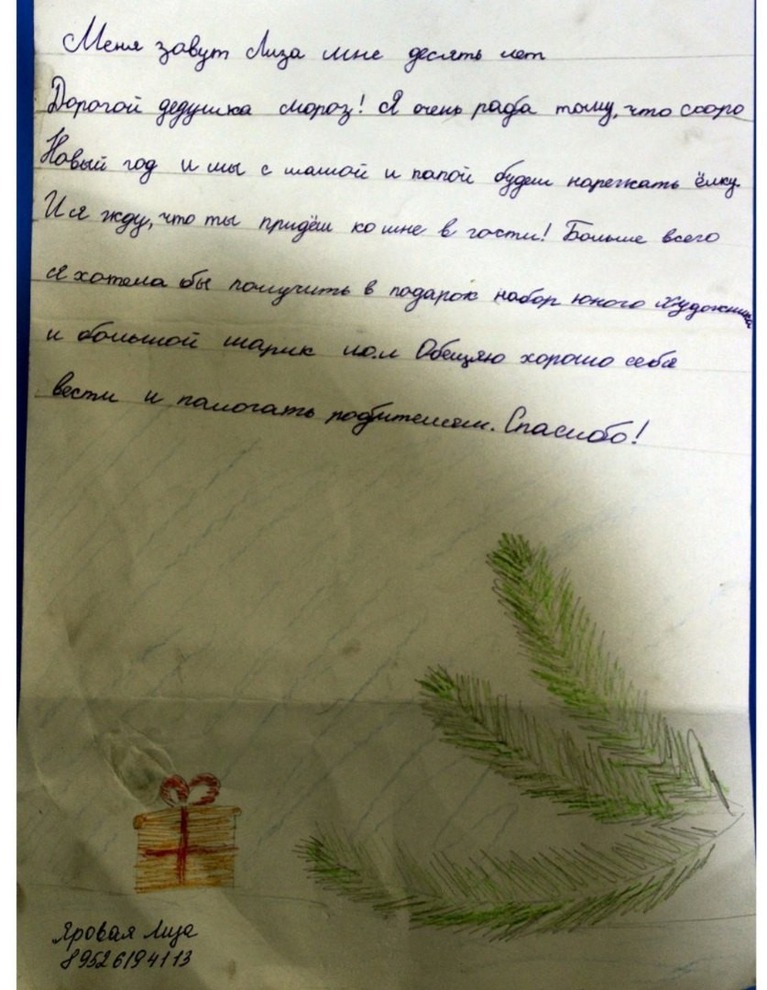 Меня завут Лиза мне десять лет
Дорогой дедушка мороз! Я очень рада тому, что скоро
Новый год и мы с мамой и папой будем нарежать ёлку.
И я жду, что ты придёш ко мне в гости! Больше всего
я хотела бы получить в подарок набор юного художника
и большой шарик лол Обещяю хорошо себя
вести и памогать родителям. Спасибо!
Яровая Лиза
89526194113